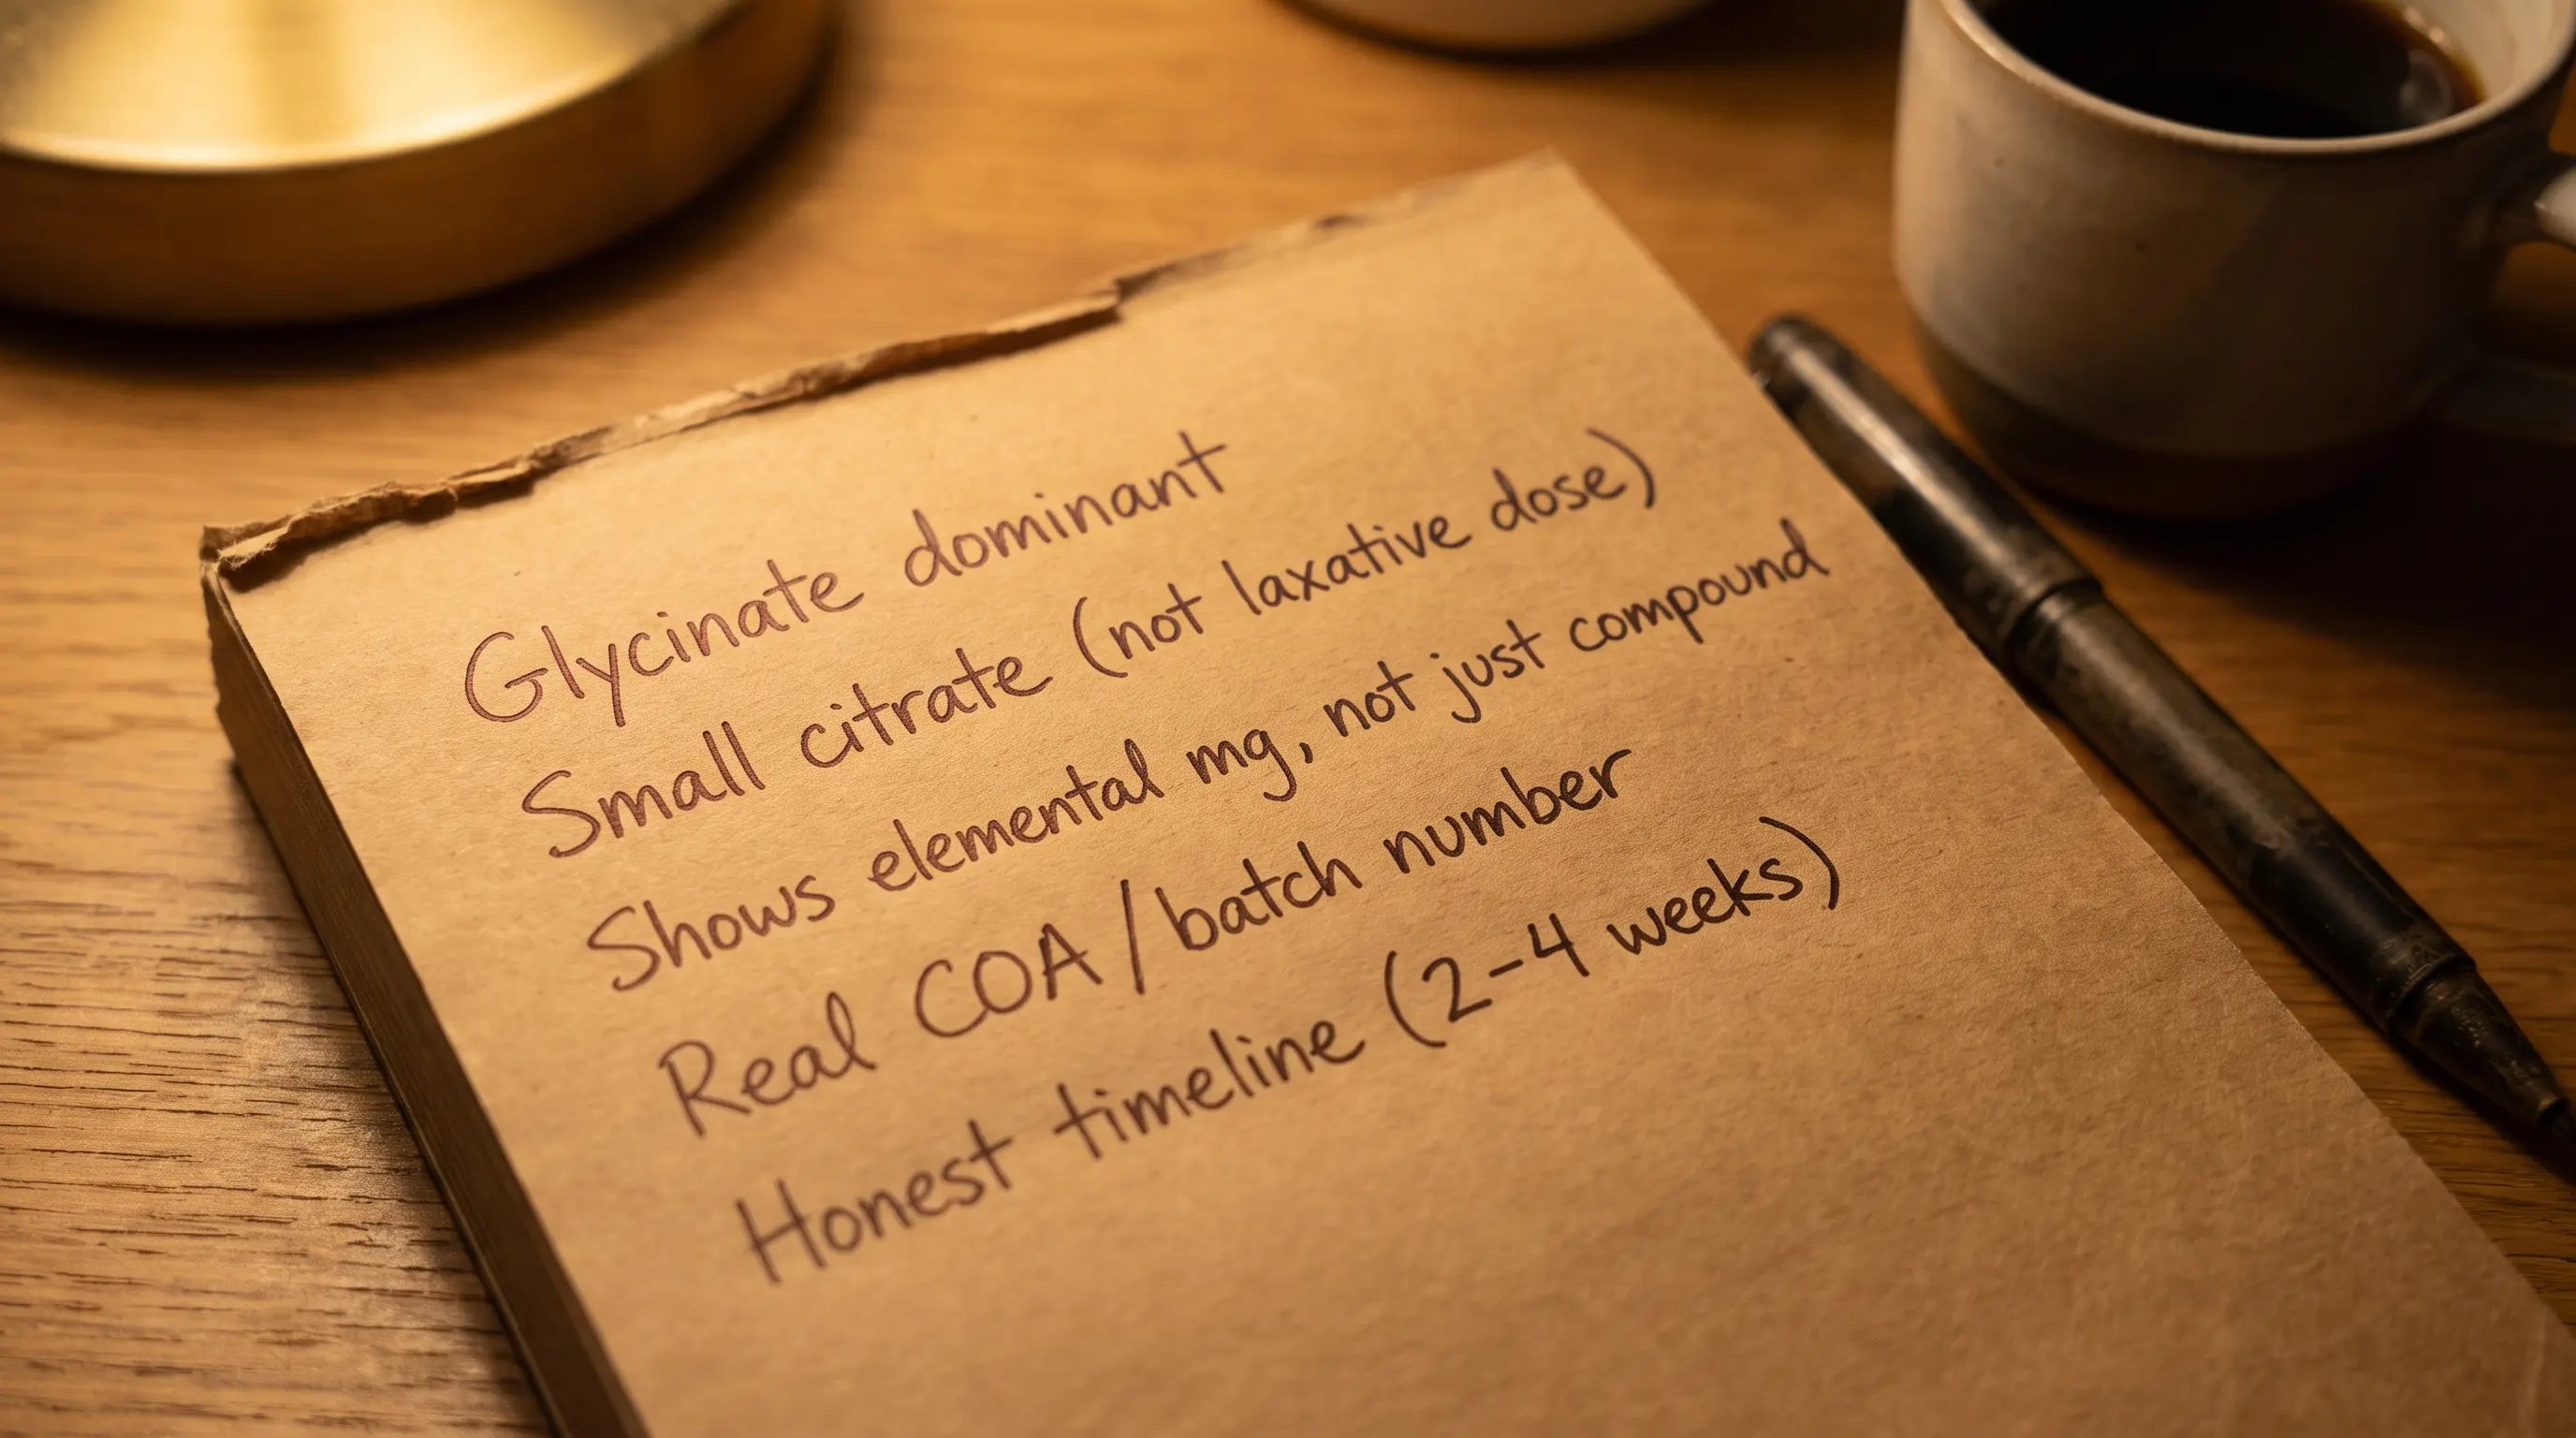 Glycinate dominant
Small citrate (not laxative dose)
Shows elemental mg, not just compound
Real COA / batch number
Honest timeline (2–4 weeks)